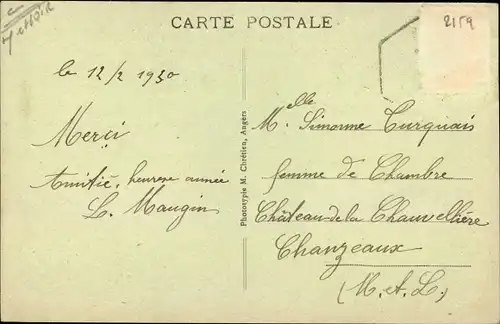 CARTE POSTALE
2159
le 12/2 1930
Merci
Amitié, heurese année
L. Maugin
Phototypie M. Chrétien, Angers
Melle Simonne Turquais
femme de Chambre
Château de la Chauvellière
Chanzeaux
(M. et L.)